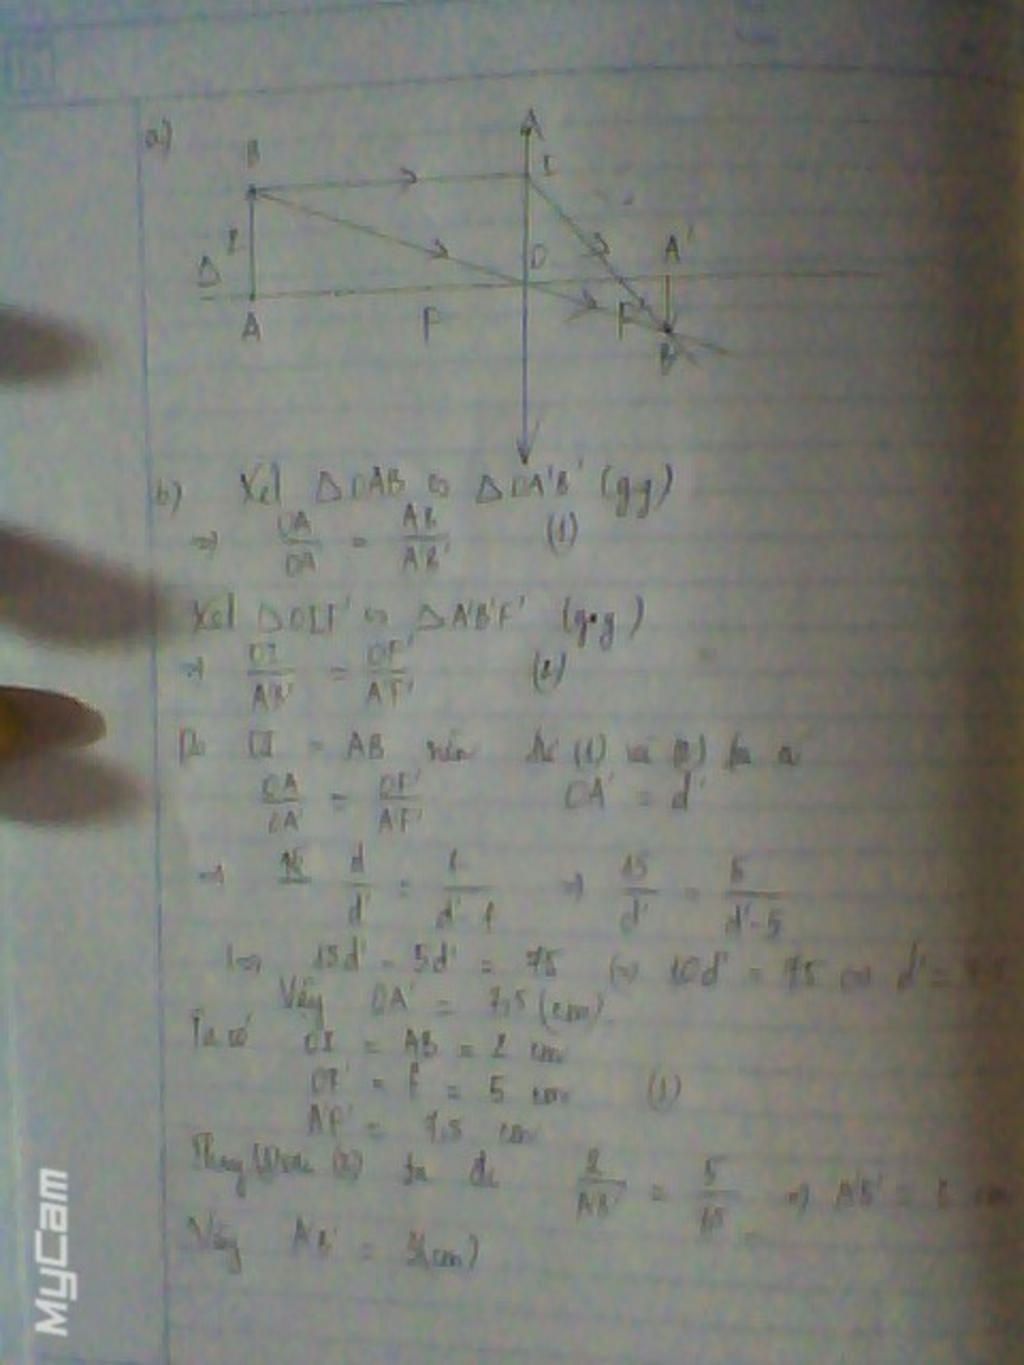 a)
B
I
Δ
O
A'
A
F
F'
B'
b) Xét Δ OAB ∽ Δ OA'B' (g.g)
=> OA/OA' = AB/A'B' (1)
Xét Δ OIF' ∽ Δ A'B'F' (g.g)
=> OI/A'B' = OF'/A'F' (2)
Do OI = AB nên từ (1) và (2) ta có
OA/OA' = OF'/A'F' OA' = d'
=> d/d' = f/d'-f => 15/d' = 5/d'-5
<=> 15d' - 5d' = 75 <=> 10d' = 75 <=> d' = 7,5
Vậy OA' = 7,5 (cm)
Ta có OI = AB = 2 cm
OF' = f = 5 cm (1)
A'F' = 7,5 cm
Thay vào (2) ta 2/A'B' = 5/ => A'B' = cm
Vậy A'B' = (cm)
MyCam